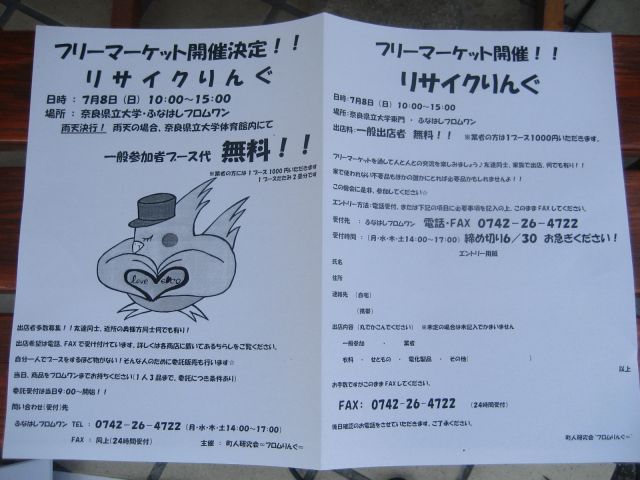 フリーマーケット開催決定！！
リサイクりんぐ
日時 ： 7月8日（日）10:00～15:00
場所 ： 奈良県立大学・ふなはしフロムワン
雨天決行！ 雨天の場合、奈良県立大学体育館内にて
一般参加者ブース代 無料！！
※業者の方には1ブース1000円いただきます
1ブースたたみ2畳分です
love
出店者多数募集！！友達同士、近所の奥様方同士何でも有り！
出店希望は電話、FAXで受け付けています。詳しくは各商店に置いてあるちらしをご覧ください。
自分一人でブースをするほど物がない！そんな人のために委託販売も行います☆
当日、商品をフロムワンまでお持ちください（1人3品まで、委託につき条件あり）
委託受付は当日9:00～開始！！
問い合わせ（受付）先
ふなはしフロムワン TEL ： 0742-26-4722 （月・水・木・土14:00～17:00）
FAX ： 同上（24時間受付）
主催 ： 町人研究会～フロムりんぐ～
フリーマーケット開催！！
リサイクりんぐ
日時：7月8日（日）10:00～15:00
場所：奈良県立大学東門 ・ ふなはしフロムワン
出店料：一般出店者 無料！！ ※業者の方は1ブース1000円いただきます。
フリーマーケットを通して人と人との交流を楽しみましょう♪友達同士、家族で出店、何でも有り！！
家で使われない不要品もほかの誰かにとれば必要品かもしれませんよ！！
この機会に是非、参加してください☆
エントリー方法：電話受付、または下記の項目に必要事項を記入の上、このままFAXしてください。
受付先 ： ふなはしフロムワン 電話・FAX 0742-26-4722
受付時間 ：（月・水・木・土14:00～17:00）締め切り6／30 お急ぎください！
エントリー用紙
氏名
住所
連絡先 （自宅）
（携帯）
出店内容（丸でかこんでください） ※未定の場合は未記入でかまいません
一般参加 ・ 業者
衣料 ・ せともの ・ 電化製品 ・ その他（ ）
以上
お手数ですがこのままFAXしてください。
FAX： 0742-26-4722 （24時間受付）
後日確認のお電話をさせていただきます。ご了承ください。
町人研究会～フロムりんぐ～